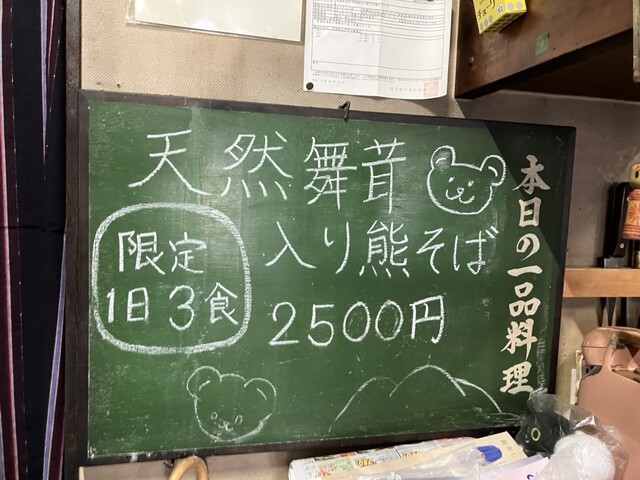 本日の一品料理
天然舞茸
入り熊そば
2500円
限定
1日3食